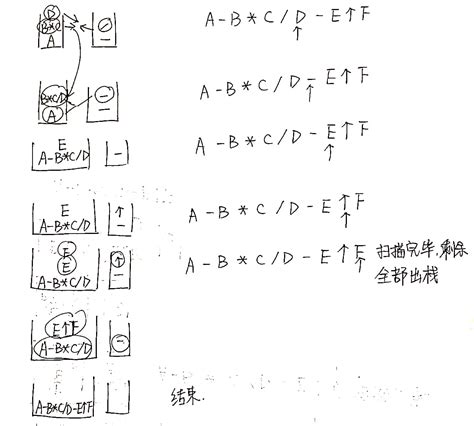 D
B*C
A
/
-
A-B*C/D-E↑F
↑
B*C/D
A
-
A-B*C/D-E↑F
↑
E
A-B*C/D
-
A-B*C/D-E↑F
↑
E
A-B*C/D
↑
-
A-B*C/D-E↑F
↑
F
E
A-B*C/D
↑
-
A-B*C/D-E↑F
↑
扫描完毕,剩余
全部出栈
E↑F
A-B*C/D
-
A-B*C/D-E↑F
结束.